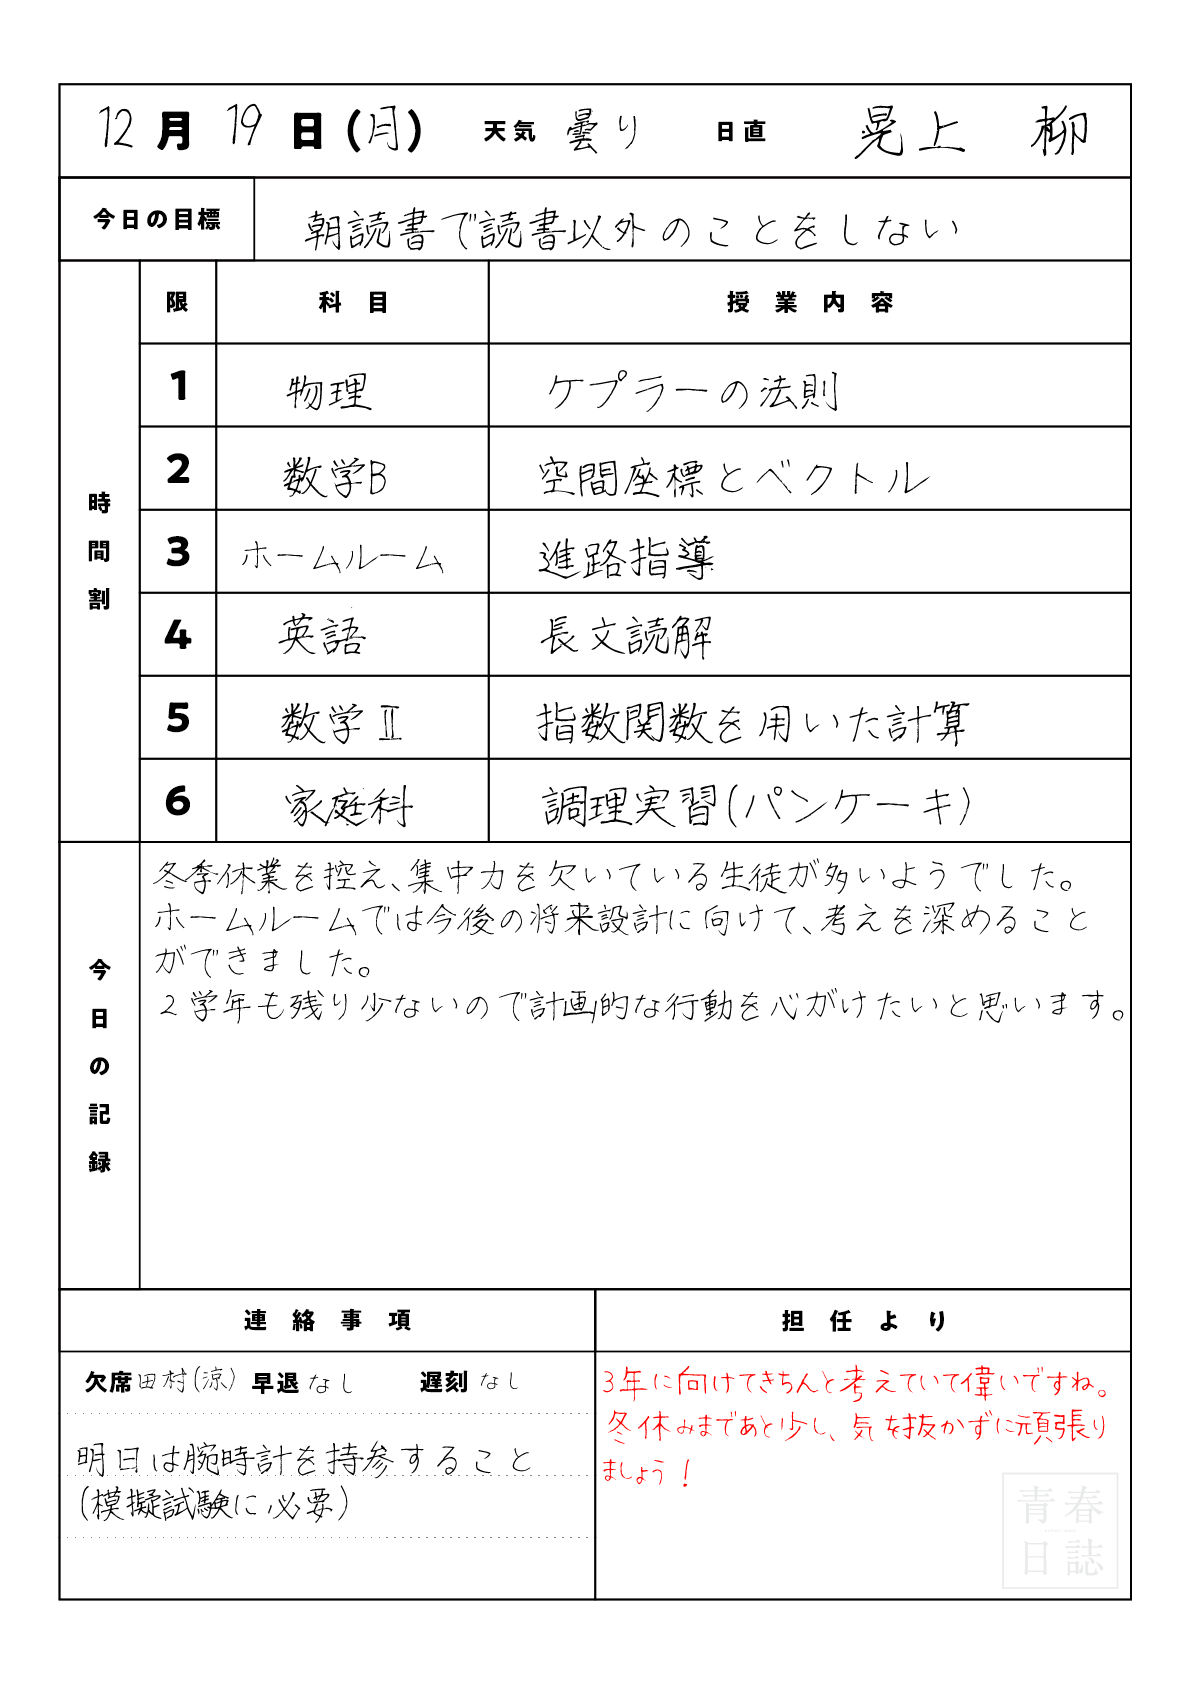 12月19日(月) 天気 曇り 日直 晃上 柳
今日の目標 朝読書で読書以外のことをしない
時間割
限 科目 授業内容
1 物理 ケプラーの法則
2 数学B 空間座標とベクトル
3 ホームルーム 進路指導
4 英語 長文読解
5 数学Ⅱ 指数関数を用いた計算
6 家庭科 調理実習(パンケーキ)
今日の記録
冬季休業を控え、集中力を欠いている生徒が多いようでした。
ホームルームでは今後の将来設計に向けて、考えを深めること
ができました。
2学年も残り少ないので計画的な行動を心がけたいと思います。
連絡事項
欠席 田村(涼) 早退 なし 遅刻 なし
明日は腕時計を持参すること
(模擬試験に必要)
担任より
3年に向けてきちんと考えていて偉いですね。
冬休みまであと少し、気を抜かずに頑張り
ましょう!
青春
日誌